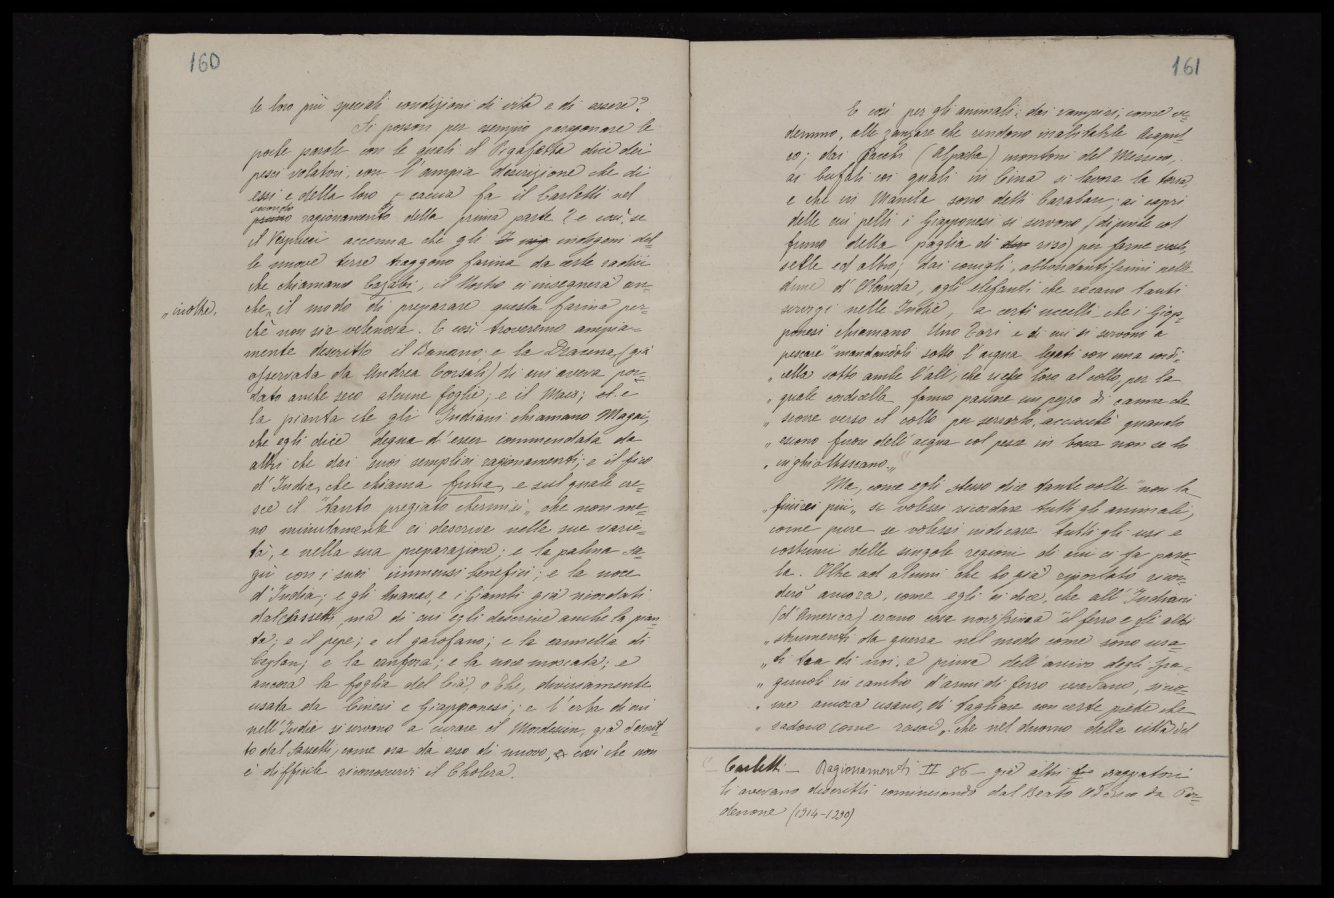 160
le loro più speciali condizioni di vita e di essere?
Si possono per esempio paragonare le
poche parole con le quali il Pigafetta dice dei
pesci volatori, con l'ampia descrizione che di
essi e della loro caccia fa il Carletti nel
secondo
primo ragionamento della prima parte? e così, se
il Vespucci accenna che gli indigeni del-
le nuove terre traggono farina da certe radici
che chiamano Cazabi, il Nostro ci insegnerà an-
„ inoltre.
che „ il modo di preparare questa farina per-
chè non sia velenosa. E così troveremo ampia-
mente descritto il Banano e la Dracena (già
osservata da Andrea Corsali) di cui aveva por-
tato anche seco alcune foglie; e il Mais; e
la pianta che gli Indiani chiamano Magai,
che egli dice degna di esser commendata da
altri che dai suoi semplici ragionamenti; e il fico
d'India, che chiama funa, e sul quale cre-
sce il "tanto pregiato chermisi„ che non me-
no minutamente ci descrive nelle sue varie-
tà, e nella sua preparazione; e la palma sa-
gù con i suoi immensi benefici; e la noce
d'India; e gli Ananas, e i Giambi già ricordati
dal Sassetti, ma di cui egli descrive anche la pian-
ta; e il pepe; e il garofano; e la cannella di
Ceylan; e la canfora; e la noce moscata; e
ancora la foglia del Cià, o Thè, diversamente
usata da Cinesi e Giapponesi; e l'erba di cui
nell'India si servono a curare il Mordescin, già descrit-
to dal Sassetti, come ora da esso di nuovo, così che non
è difficile riconoscervi il Cholera.
161
E così per gli animali: dai vampiri, come ve-
demmo, alle zanzare che rendono inabitabile Acapul-
co; dai Pacchi (Alpacha) montoni del Messico,
ai bufali coi quali in Cina si lavora la terra,
e che in Manila sono detti Carabao; ai capri
delle cui pelli i Giapponesi si servono (dipinte col
fumo della paglia di riso) per farne veste,
selle ed altro; dai conigli, abbondantissimi nelle
dune d'Olanda, agli elefanti che recano tanti
servigi nelle Indie, a certi uccelli che i Giap-
ponesi chiamano Uno Tori e di cui si servono a
pescare "mandandoli sotto l'acqua legati con una cordi-
„ cella sotto ambe l'ali, che riesce loro al collo, per la
„ quale cordicella fanno passare un pezzo di canna che
„ scorre verso il collo per serrarlo, acciocchè quando
„ escono fuori dell'acqua col pesce in bocca non se lo
„ inghiottiscano.„ (1
Ma, come egli stesso dice tante volte "non la
„ finirei più„ se volessi ricordare tutti gli animali,
come pure se volessi indicare tutti gli usi e
costumi delle singole regioni di cui ci fa paro-
la. Oltre ad alcuni che ho già riportato ricor-
derò ancora, come egli ci dice, che all'Indiani
(d'America) erano cosa nuovissima "il ferro e gli altri
„ strumenti da guerra nel modo come sono usa-
„ ti tra di noi, e prima dell'arrivo degli Spa-
„ gnuoli in cambio d'armi di ferro usavano, sicco-
„ me ancora usano, di tagliare con certe pietre che
„ radono come rasoi„, che nel duomo della città del
(1 Carletti - Ragionamenti II 86 - già altri viaggiatori
li avevano descritti cominciando dal Beato Odorico da Por-
denone (1314-1290)